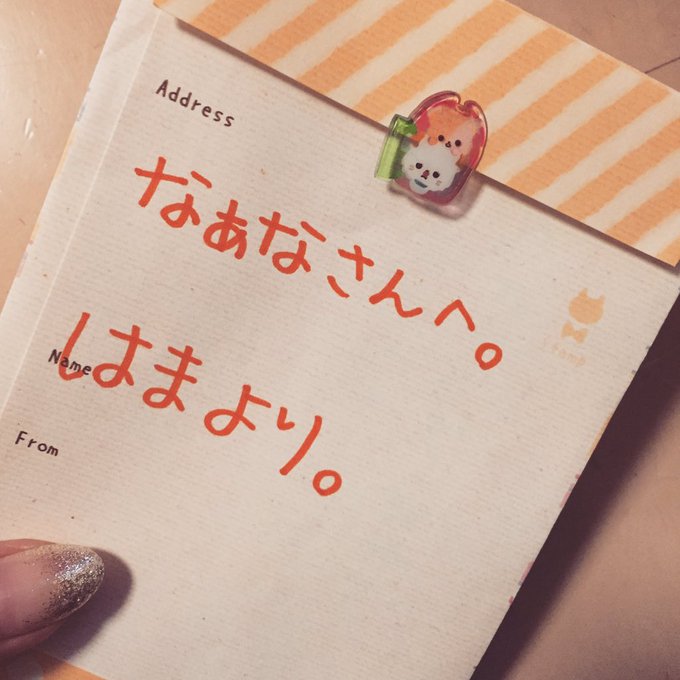 Address
なぁなさんへ。
Name
はまより。
From